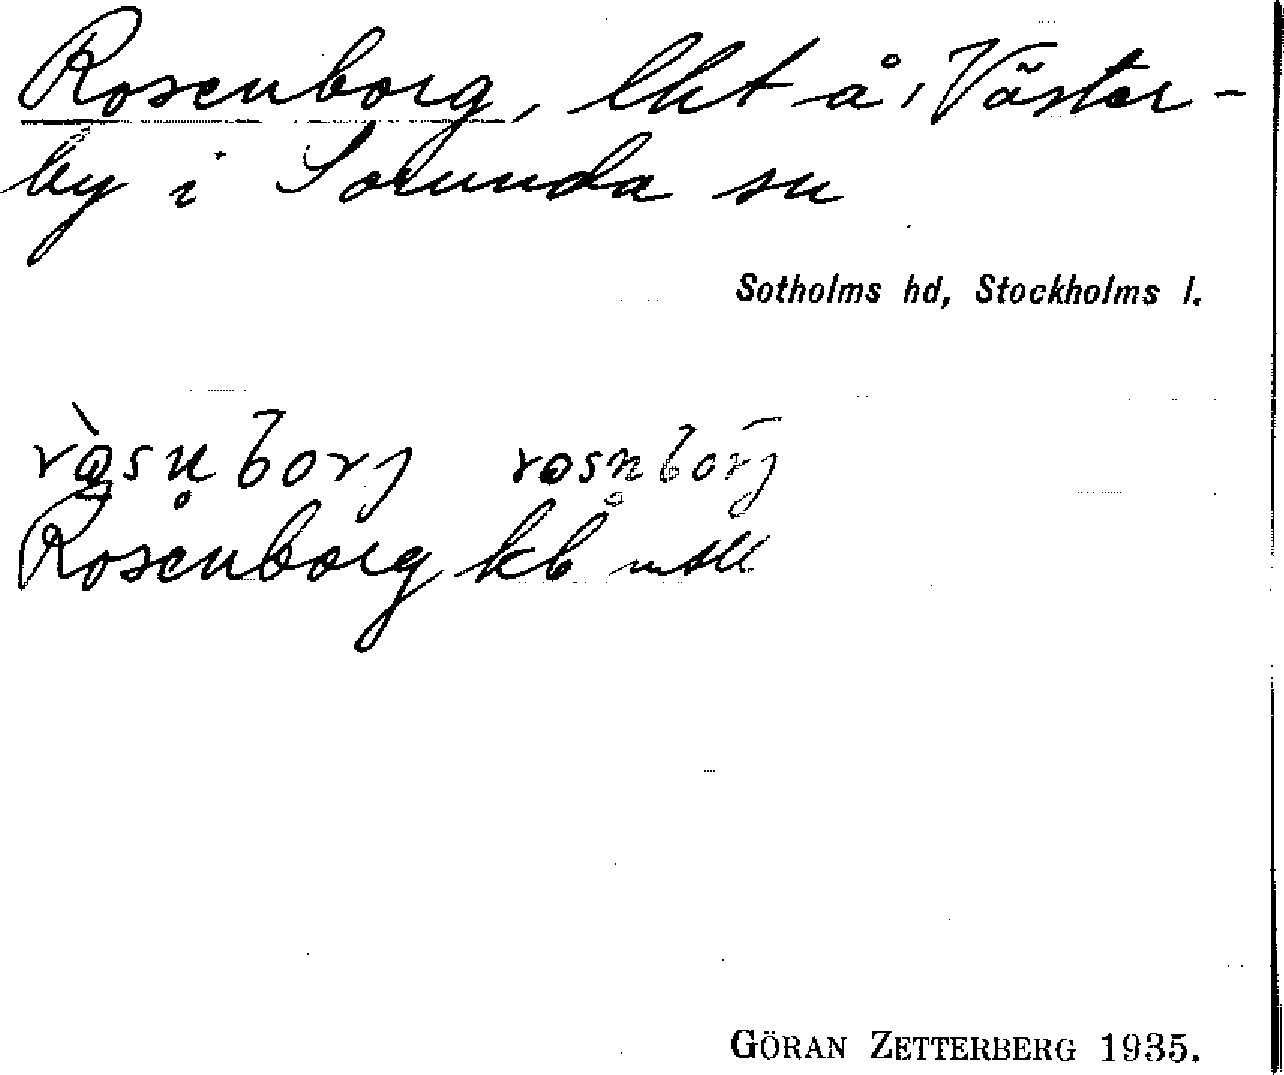 Rosenborg, lht å, Väster-
by i Sorunda sn
Sotholms hd, Stockholms l.
Rosenborg kb
GÖRAN ZETTERBERG 1935.